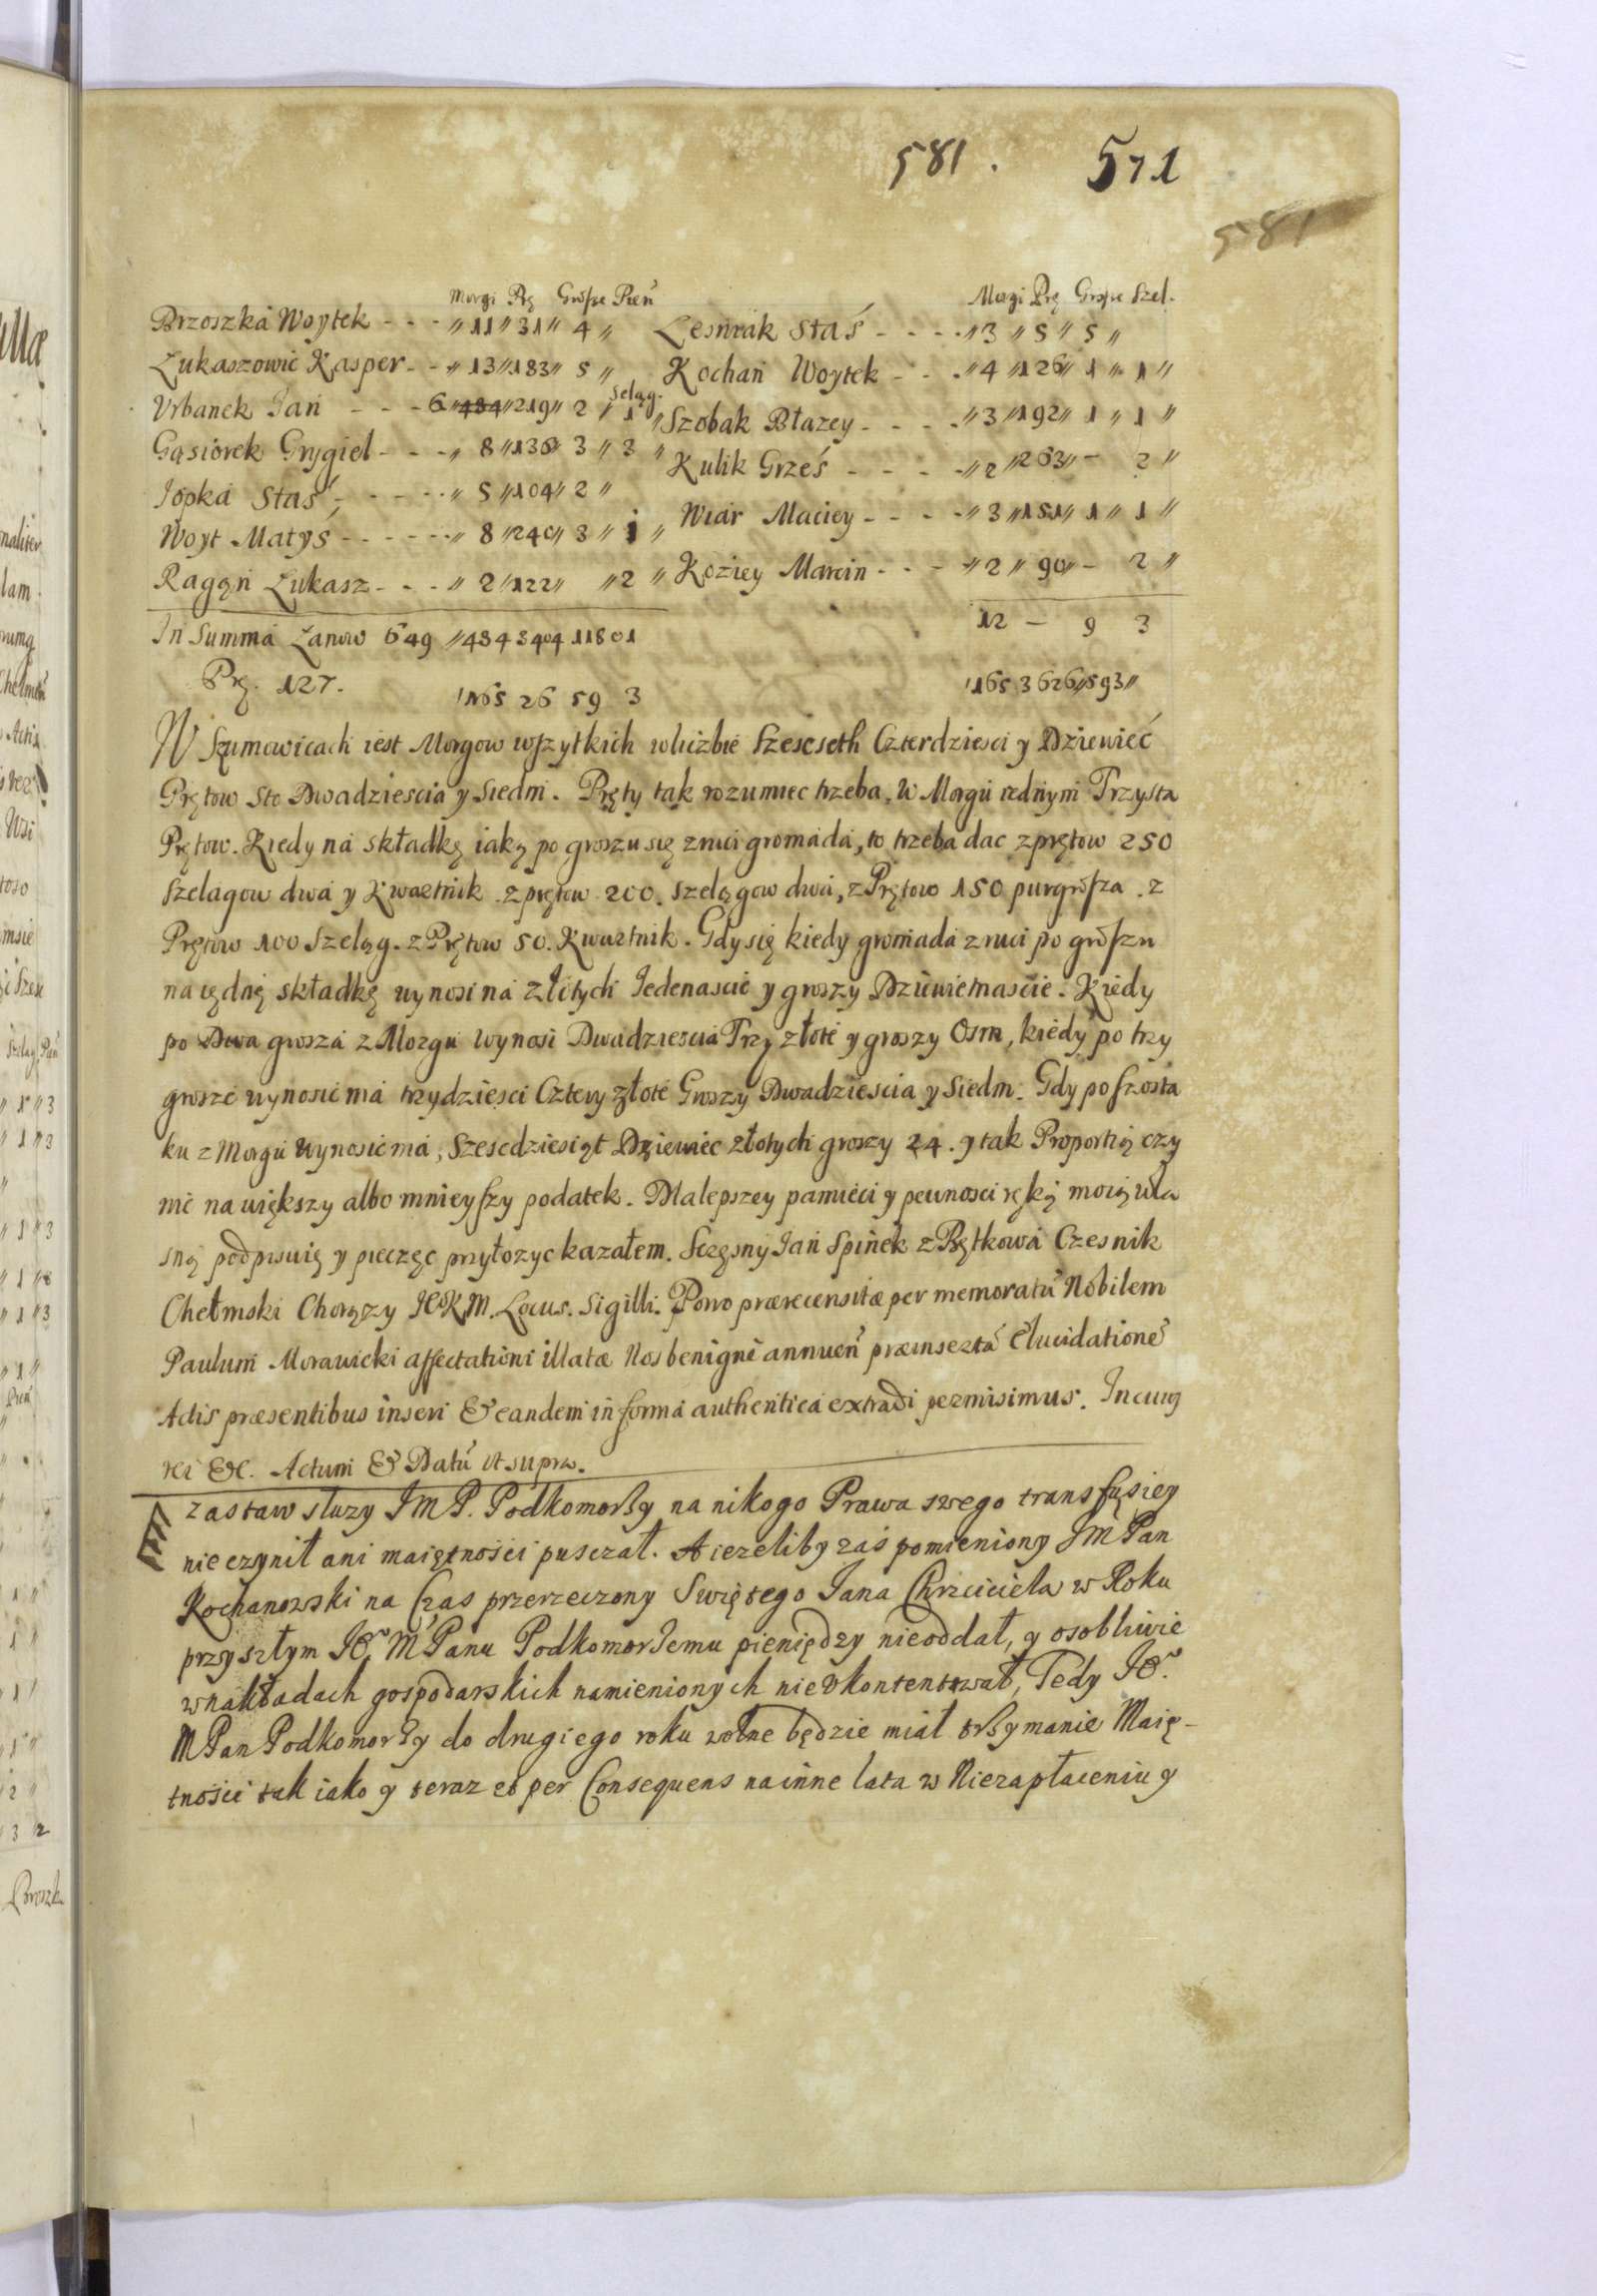 581. 571
581
Morgi Prę Grosze Pień
Morgi Prę Grosze Szel.
Brzoszka Woytek - - - " 11 " 31 " 4 " Lesniak Staś - - - - " 3 " 5 " 5 "
Łukaszowic Kasper - - " 13 " 183 " 5 " Kochań Woytek - - - " 4 " 126 " 1 " 1 "
Vrbanek Jan - - - 6 " 434 " 219 " 2 " Szeląg. 1 " Szobak Błazey - - - - " 3 " 192 " 1 " 1 "
Gąsiorek Grygiel - - - " 8 " 136 " 3 " 3 " Kulik Grześ - - - - " 2 " 263 " - 2 "
Jopka Staś - - - - - " 5 " 104 " 2 " Wiár Maciey - - - - " 3 " 151 " 1 " 1 "
Woyt Matys - - - - - - " 8 " 240 " 3 " 1 "
Ragąn Łukasz - - - " 2 " 122 " " 2 " Koziey Marcin - - - " 2 " 90 " - 2 "
In Summa Łanow 649 " 434 3404 118 01 12 - 9 3
Prę. 127. 1165 26 59 3 1165 3 626 " 593 "
W Szumowicach iest Morgow wszytkich wliczbie Szescseth Czterdziesci y Dziewiéc
Prętow Sto Dwadziescia y Siedm. Pręty tak rozumiec trzeba, w Morgu iednym Trzysta
Prętow. Kiedy na składkę iaką po groszu się zruci gromada, to trzeba dac z prętow 250
Szelagow dwa y Kwartnik z prętow 200. szelągow dwa, z Prętow 150 purgrosza. z
Prętow 100 Szeląg. z Prętow 50. Kwartnik. Gdy się kiedy gromada zruci po groszu
na iędnę składkę wynosi na Złotych Jedenascie y groszy Dziewietnascie. Kiedy
po Dwa grosza z Morgu wynosi Dwadziescia Trzy złote y groszy Osm, kiedy po trzy
grosze wynosic ma trzydziesci Cztery złote Groszy Dwadziescia y Siedm. Gdy po szosta
ku z Morgu wynosic ma, Szescdziesiąt Dziewiec złotych groszy 24. y tak Proportią czy
nic na większy albo mnieyszy podatek. Dla lepszey pamieci y pewnosci ręką moią wła
sną podpisuię y pieczęc przyłozyc kazałem. Sczęsny Jan Spinek z Bętkowa Czesnik
Chełmski Chorązy JoKM. Locus. Sigilli. Porro præcensitæ per memoratu Nobilem
Paulum Morawicki affectationi illatæ Nos benigne annuen præinserta Elucidatione
Actis præsentibus inseri & eandem in forma authentica extradi permisimus. In cuius
rei &c. Actum & Datu vt supra.
zastaw sluzy JMP. Podkomorzy na nikogo Prawa swego transfusiey
nieczynił ani maiętności pusczał. A iezeliby zaś pomieniony JM Pan
Kochanowski na Czas przerzeczony Swiętego Jana Chrzciciela w Roku
przyszłym Jo M Panu Podkomorzemu pieniędzy nieoddał, y osobliwie
wnakładach gospodarskich namienionych nie vkontentował, Tedy Jo
M Pan Podkomorzy do drugiego roku wolne będzie miał trzymanie Maię-
tności tak iako y teraz et per Consequens na inne lata w Niezapłaceniu y